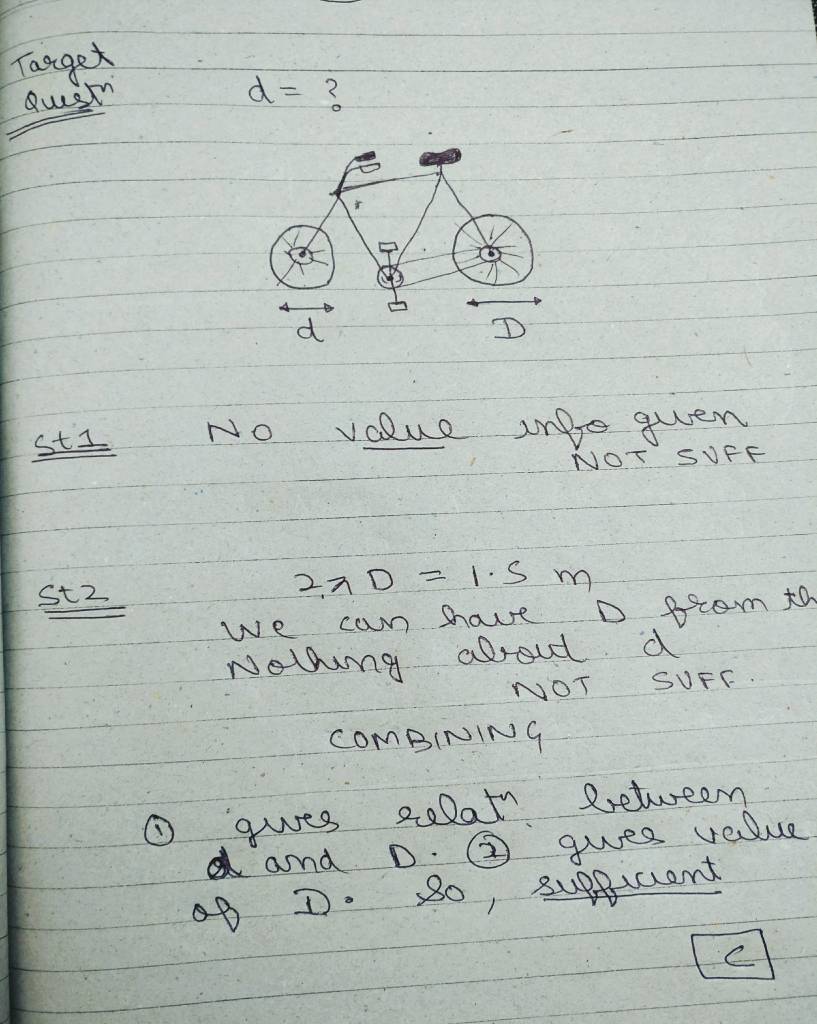 Target
Questn
d = ?
d
D
St1
No value info given
NOT SUFF
St2
2πD = 1.5 m
We can have D from th
Nothing about d
NOT SUFF.
COMBINING
① gives relatn between
d and D. ② gives value
of D. So, sufficient
C